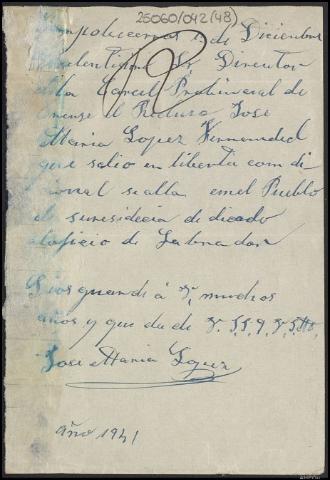 25060/042 (48)
de Diciembre
Sr Director
de la Carcel Probincial de
orense el Recluso Jose
Maria Lopez Fernandez
que salio en liberta con di
cional se alla en el Pueblo
de su residecia de dicado
al oficio de Labrador
Dios guarde á V, muchos
años y que da de V. S. S. q. V. S. tto
Jose Maria Lopez
año 1941